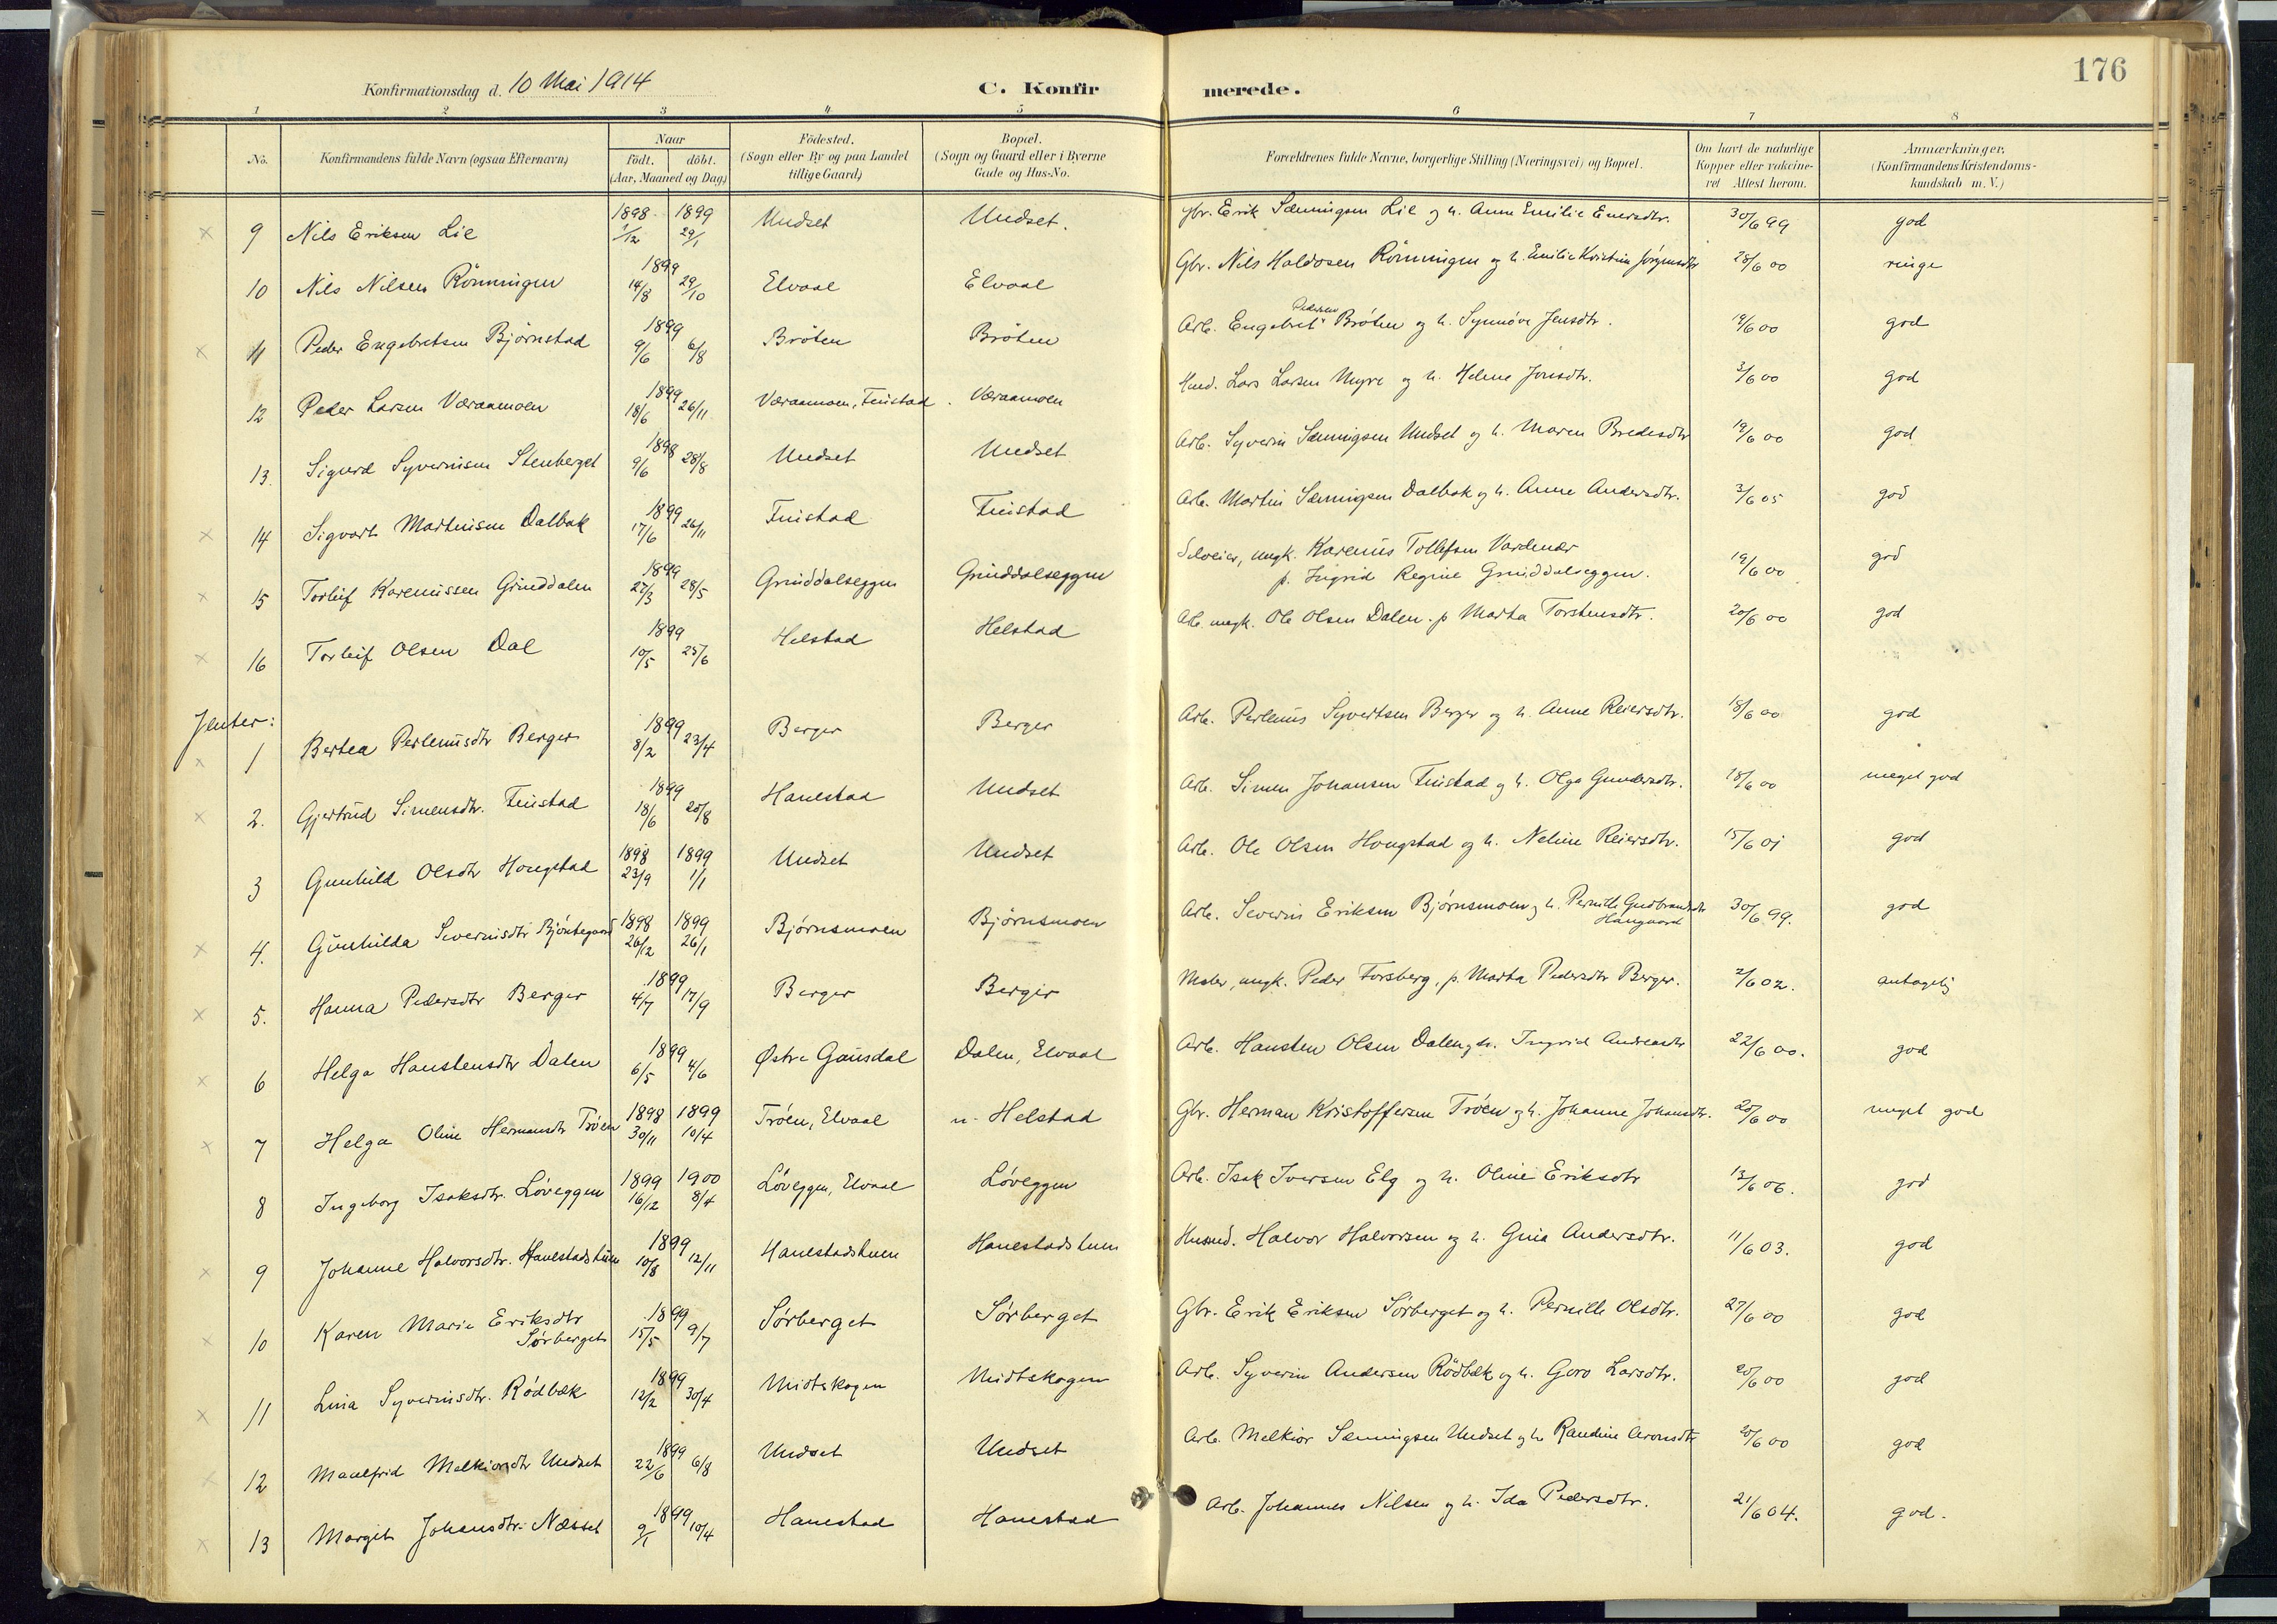 176
Konfirmationsdag d. 10 Mai 1914 C. Konfirmerede.
1 2 3 4 5 6 7 8
No. Konfirmandens fulde Navn (ogsaa Efternavn) Naar født. døbt. (Aar, Maaned og Dag) Födested. (Sogn eller By og paa Landet tillige Gaard) Bopæl. (Sogn og Gaard eller i Byerne Gade og Hus-No. Forældrenes fulde Navne, borgerlige Stilling (Næringsvei) og Bopæl. Om havt de naturlige Kopper eller vaccineret Attest herom. Anmærkninger, (Konfirmandens Kristendomskundskab m. V.)
9 Nils Eriksen Lie 1898 1/12 1899 29/1 Undset Undset. Gbr. Erik Sæmingsen Lie og h. Anne Emilie Enersdtr. 30/6 99 god
10 Nils Nilsen Rönningen 1899 14/8 29/10 Elvaal Elvaal Gbr. Nils Haldosen Rönningen og h. Emilie Kristine Jörgensdtr 28/6 00 ringe
11 Peder Engebretsen Bjørnstad 1899 9/6 6/8 Bröten Bröten Arb. Engebret Pedersen Bröten og h. Synnöve Jensdtr. 19/6 00 god
12 Peder Larsen Væraamoen 1899 18/6 26/11 Væraamoen, Finstad. Væraamoen Lars Larsen Myre og h. Helene Jonsdtr. 3/6 00 god
13. Sigurd Syverinsen Stenberget 1898 9/6 28/8 Undset Undset Arb. Syverin Sæmingsen Undset og h. Maren Bredesdtr 19/6 00 god
14 Sigvart Martinisen Dalbak 1899 17/6 26/11 Finstad Finstad Arb. Martin Sæmingsen Dalbak og h. Anne Andersdtr. 3/6 05 god
15 Torleif Kareniussen Grinddalen 1899 27/3 28/5 Grinddalseggen Grinddalseggen Selveier, ungk. Karenius Tollefsen Vardenær
p. Ingrid Regine Grinddalseggen. 19/6 00 god
16 Torleif Olsen Dal 1899 10/5 25/6 Helstad Helstad Arb. ungk. Ole Olsen Dalen. p Marta Torstensdtr. 20/6 00 god
Jenter:
1 Bertea Perleniusdtr Berger 1899 8/2 23/4 Berger Berger Arb. Perlenius Syvertsen Berger og h. Anne Reiersdtr. 18/6 00 god
2. Gjertrud Simensdtr. Finstad 1899 18/6 20/8 Hanestad Undset Arb. Simen Johansen Finstad og h. Olga Gundersdtr. 18/6 00 meget god
3 Gunhild Olsdtr Hougstad 1898 23/9 1899 1/1 Undset Undset Arb. Ole Olsen Hougstad og h. Neline Reiersdtr. 15/6 01 god
4. Gunhilda Severinsdtr 1898 26/12 1899 26/1 Bjørnsmoen Bjørnsmoen Arb. Severin Eriksen Bjørnsmoen og h. Pernille Gudbrandsdtr
Haugaard 30/6 99. god
5. Hanna Pedersdtr Berger 1899 4/7 17/9 Berger Berger Maler, ungk. Peder Forsberg, p. Marta Pedersdtr Berger. 2/6 02. antagelig
6 Helga Haustensdtr Dalen 1899 6/5 4/6 Østre Gausdal Dalen, Elvaal Arb. Hausten Olsen Dalen, h. Ingrid Andreasdtr 22/6 00. god
7 Helga Oline Hermansdtr Tröen 1898 30/11 1899 10/4 Tröen, Elvaal n. Helstad Gbr. Herman Kristoffersen Tröen og h. Johanne Johansdtr. 20/6 00 meget god
8 Ingeborg Isaksdtr. Löveggen 1899 16/12 1900 8/4 Löveggen, Elvaal Löveggen Arb. Isak Iversen Elg og h. Oline Eriksdtr 13/6 06. god
9 Johanne Halvorsdtr. Hanestadstuen 1899 10/8 12/11 Hanestadstuen Hanestadstuen Husmd. Halvor Halvorsen og h. Gina Andersdtr. 11/6 03. god
10 Karen Marie Eriksdtr
Sörberget 1899 15/5 9/7 Sörberget Sörberget Gbr. Erik Eriksen Sörberget og h. Pernille Olsdtr. 27/6 00 god
11 Lina Syverinsdtr. Rödbæk 1899 12/2 30/4 Midtskogen Midtskogen Arb. Syverin Andersen Rödbæk og h. Goro Larsdtr. 20/6 00 god
12 Maalfrid Melkiorsdtr Undset 1899 22/6 6/8 Undset Undset Arb. Melkior Sæmingsen Undset og h. Randine Aronsdtr 20/6 00 god
13 Margit Johansdtr. Næsset 1899 9/1 10/4 Hanestad Hanestad Arb. Johannes Nilsen og h. Ida Pedersdtr. 21/6 04. god.